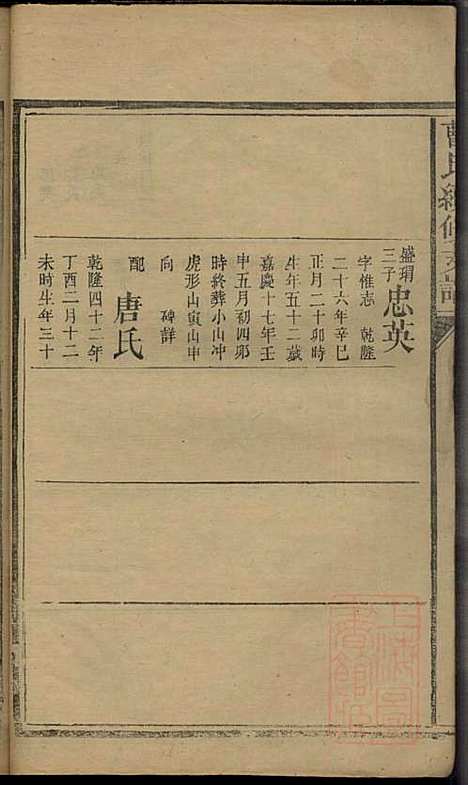 曹氏續修
盛瑁
三子
忠英
字惟志 乾隆
二十六年辛巳
正月二十卯時
生年五十二歲
嘉慶十七年壬
申五月初四卯
時終葬小山冲
虎形山寅山申
向 碑詳
配 唐氏
乾隆四十二年
丁酉二月十二
未時生年三十